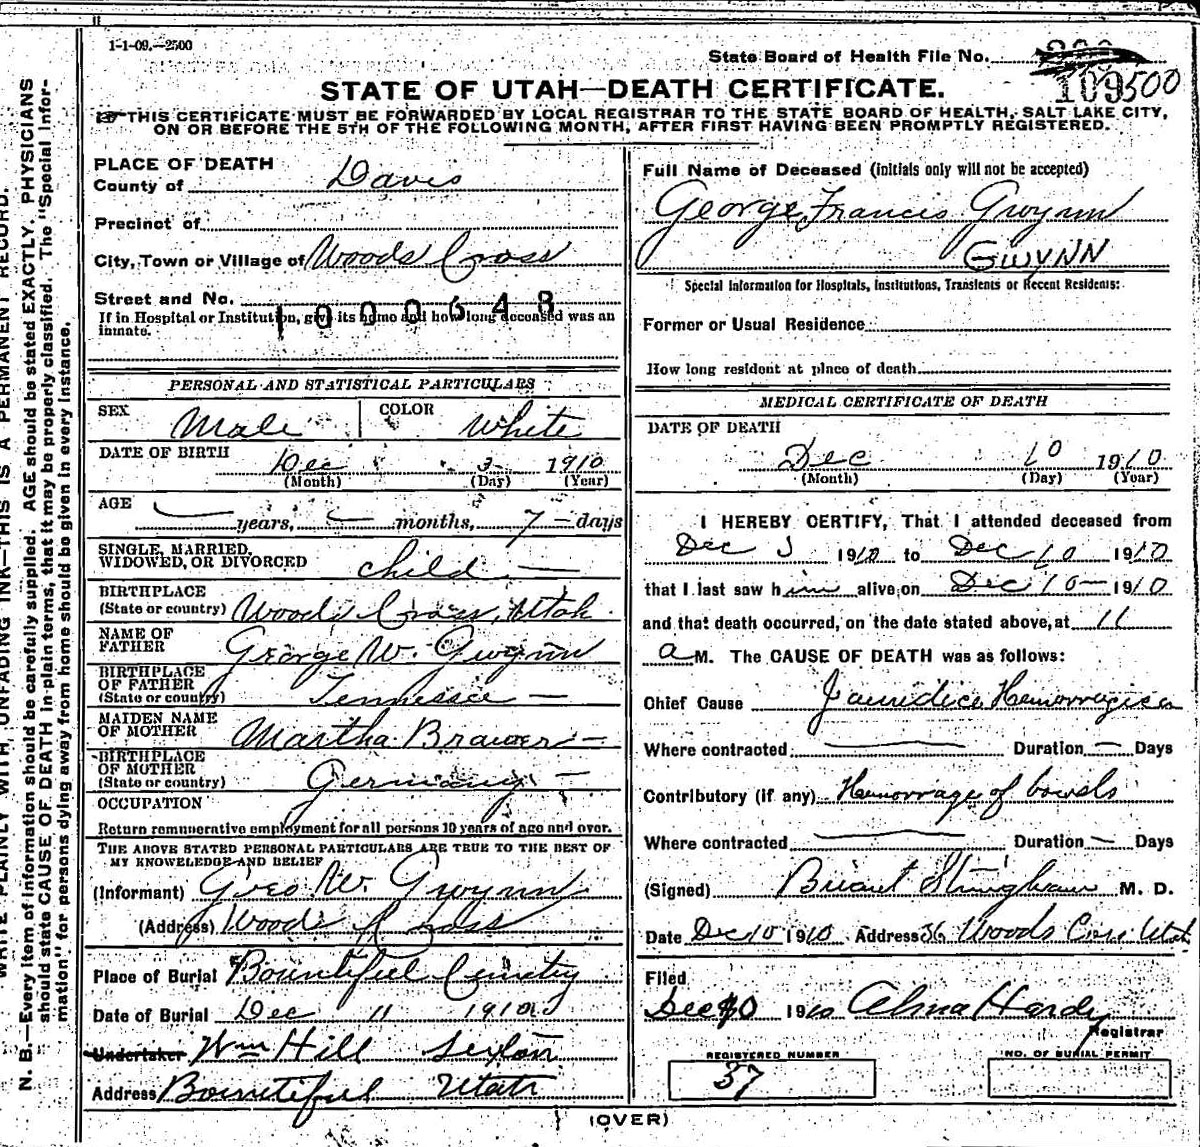 1-1-09.—2500
State Board of Health File No.
109500
STATE OF UTAH—DEATH CERTIFICATE.
THIS CERTIFICATE MUST BE FORWARDED BY LOCAL REGISTRAR TO THE STATE BOARD OF HEALTH, SALT LAKE CITY,
ON OR BEFORE THE 5TH OF THE FOLLOWING MONTH, AFTER FIRST HAVING BEEN PROMPTLY REGISTERED.
PLACE OF DEATH
County of Davis
Precinct of
City, Town or Village of Woods Cross
Street and No.
1000648
If in Hospital or Institution, give its name and how long deceased was an
inmate.
PERSONAL AND STATISTICAL PARTICULARS
SEX Male COLOR White
DATE OF BIRTH Dec 3 1910
(Month) (Day) (Year)
AGE years, months, 7 days
SINGLE, MARRIED,
WIDOWED, OR DIVORCED child
BIRTHPLACE
(State or country) Woods Cross, Utah
NAME OF
FATHER George W. Gwynn
BIRTHPLACE
OF FATHER
(State or country) Tennessee
MAIDEN NAME
OF MOTHER Martha Brawer
BIRTHPLACE
OF MOTHER
(State or country) Germany
OCCUPATION
Return remunerative employment for all persons 10 years of age and over.
THE ABOVE STATED PERSONAL PARTICULARS ARE TRUE TO THE BEST OF
MY KNOWELEDGE AND BELIEF
(Informant) Geo W. Gwynn
(Address) Woods Cross
Place of Burial Bountiful Cemetry
Date of Burial Dec 11 1910
Undertaker Wm Hill Sexton
Address Bountiful Utah
Full Name of Deceased (initials only will not be accepted)
George Francis Gwynn
GWYNN
Special Information for Hospitals, Institutions, Transients or Recent Residents:
Former or Usual Residence
How long resident at place of death
MEDICAL CERTIFICATE OF DEATH
DATE OF DEATH
Dec 10 1910
(Month) (Day) (Year)
I HEREBY CERTIFY, That I attended deceased from
Dec 1910 to Dec 10 1910
that I last saw him alive on Dec 10 — 1910
and that death occurred, on the date stated above, at 11
a M. The CAUSE OF DEATH was as follows:
Chief Cause Jaundice
Where contracted Duration Days
Contributory (if any) Hemorrage of bowels
Where contracted Duration Days
(Signed) Briant Stringham M. D.
Date Dec 10 1910 Address Woods Cross Utah
Filed
Dec 10 1910 Alma Hardy
Registrar
REGISTERED NUMBER
37
NO. OF BURIAL PERMIT
(OVER)
WRITE PLAINLY WITH UNFADING INK—THIS IS A PERMANENT RECORD.
N. B.—Every item of information should be carefully supplied. AGE should be stated EXACTLY. PHYSICIANS
should state CAUSE OF DEATH in plain terms, that it may be properly classified. The "Special Infor-
mation" for persons dying away from home should be given in every instance.